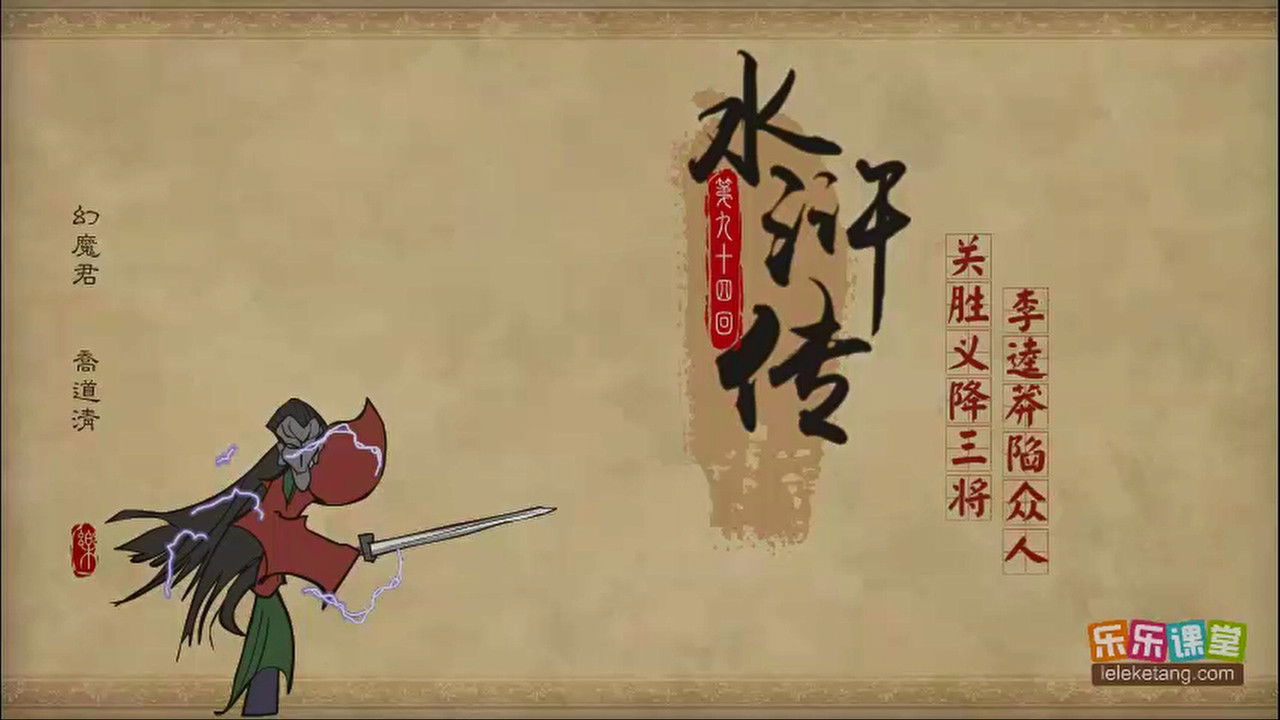 水浒传
第九十四回
关胜义降三将
李逵莽陷众人
幻魔君 喬道清
樂
乐乐课堂
leleketang.com